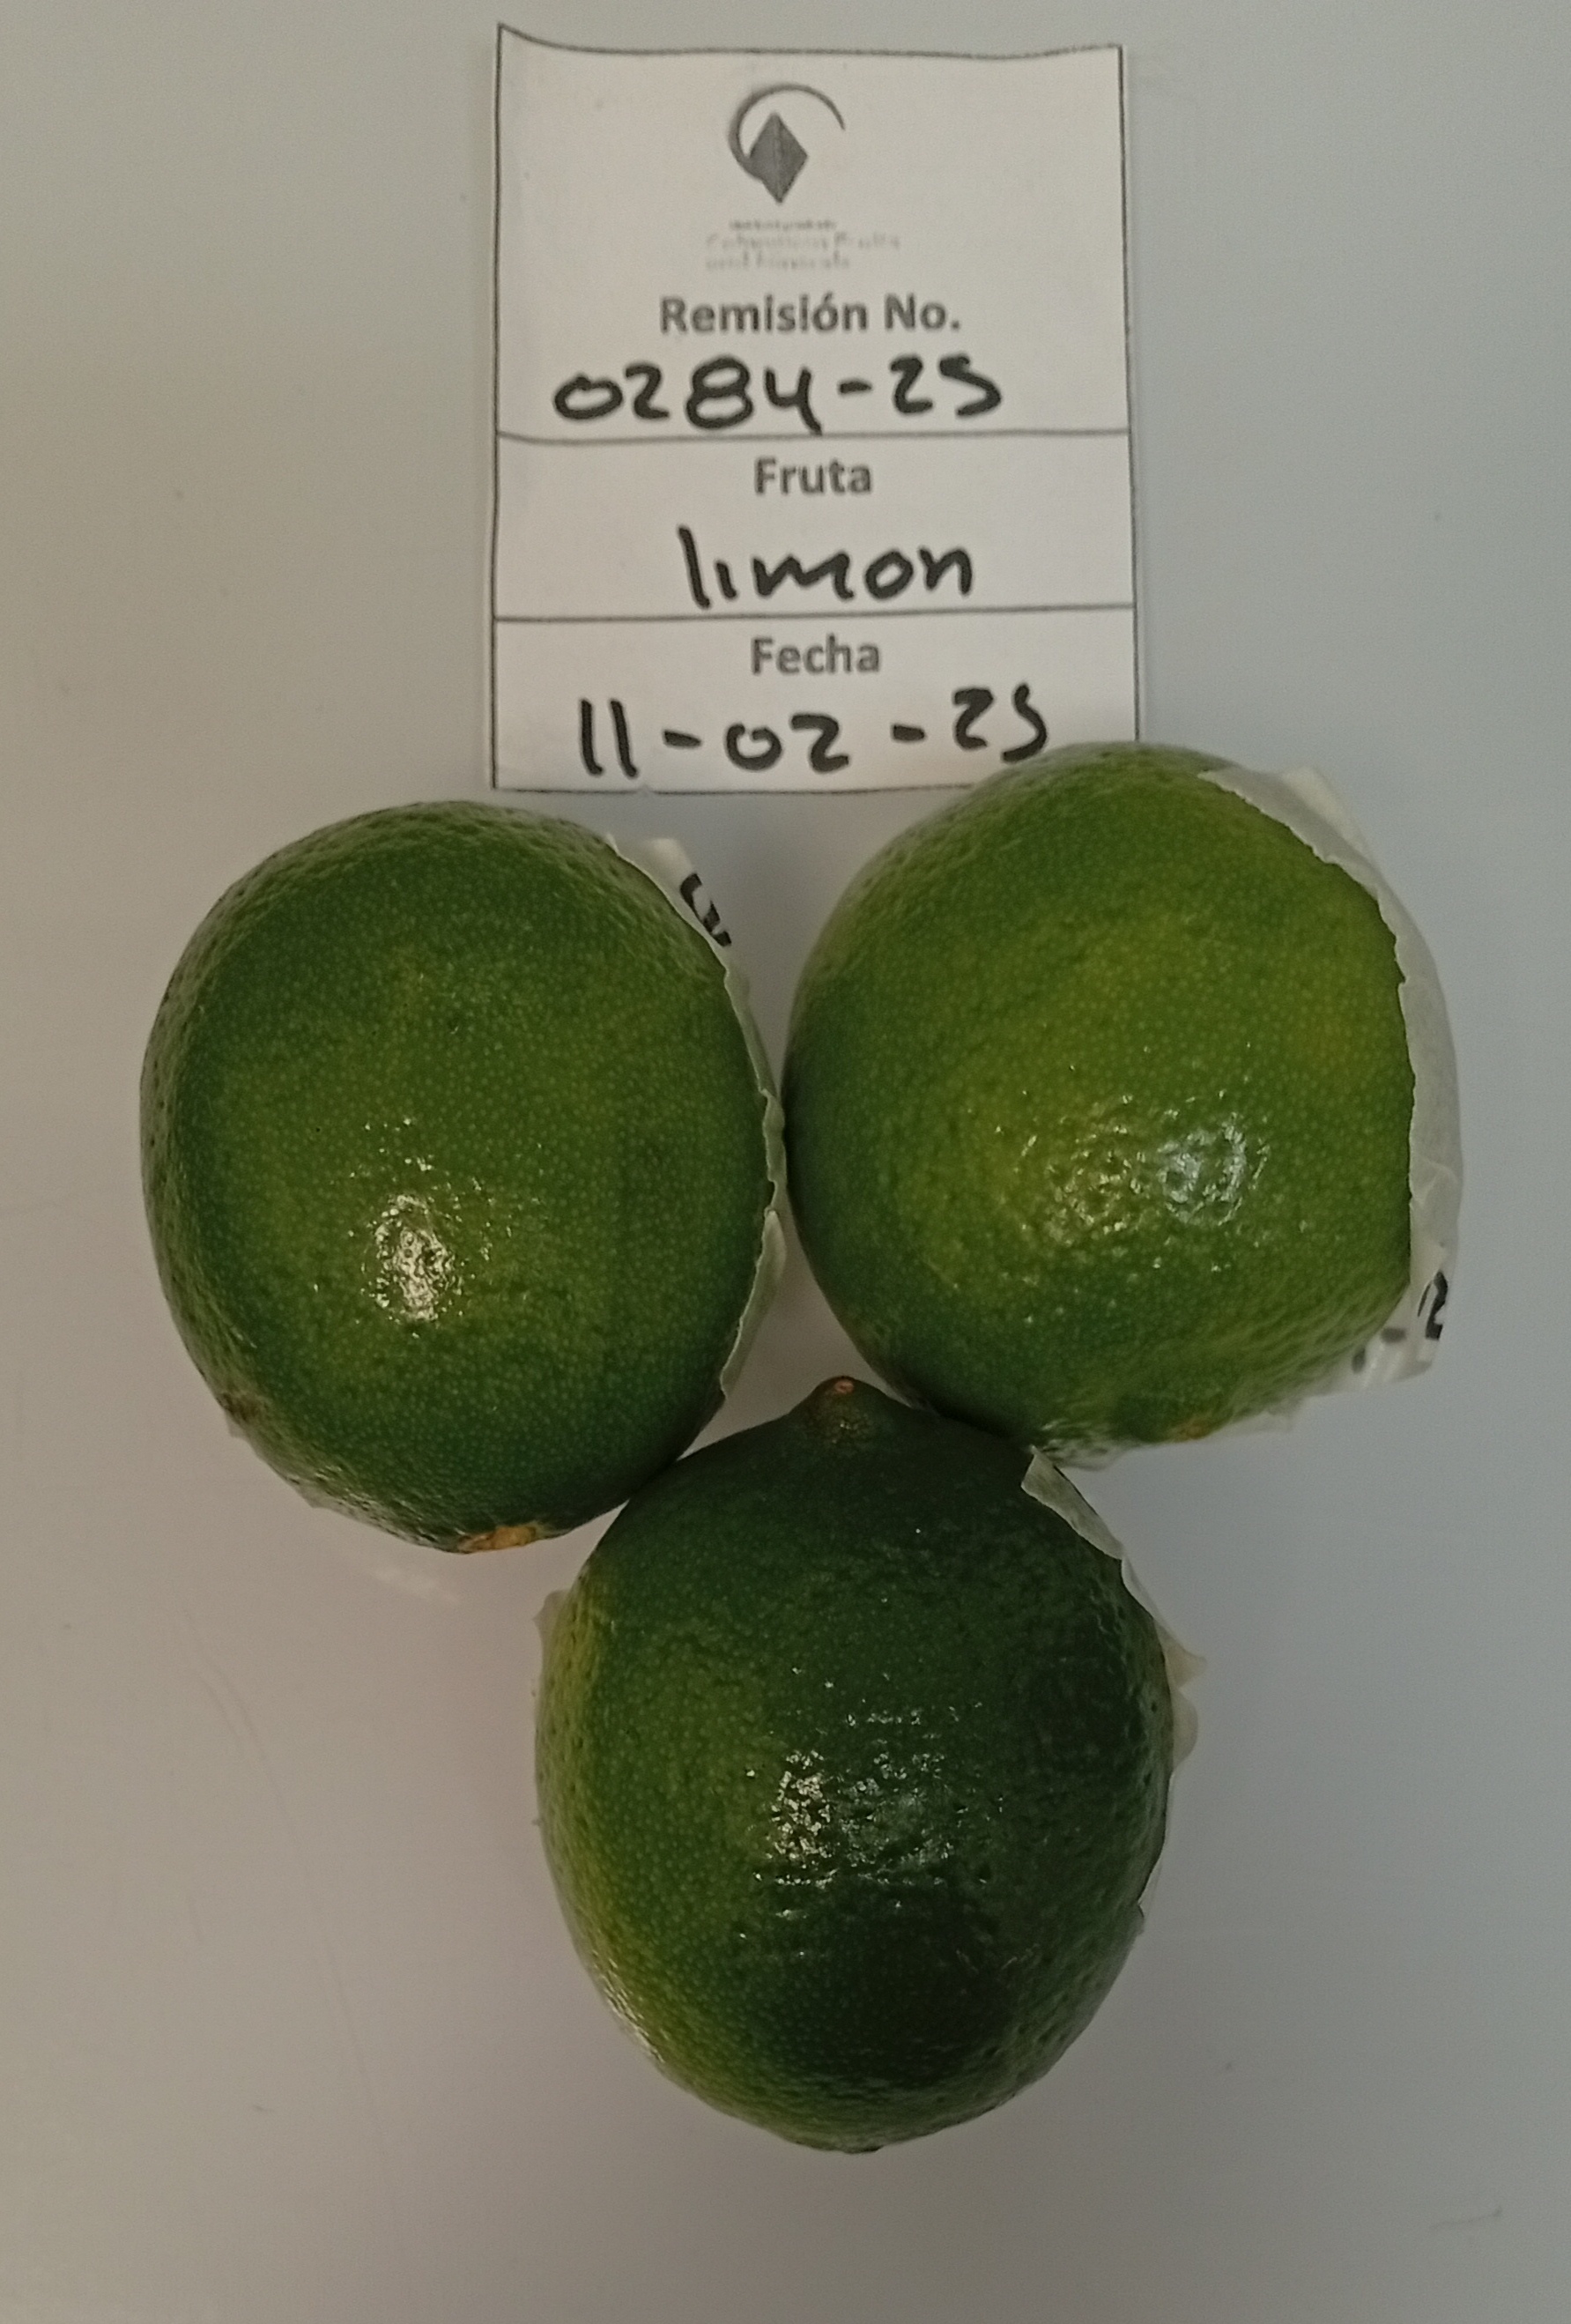 Remisión No.
0284-25
Fruta
limon
Fecha
11-02-25